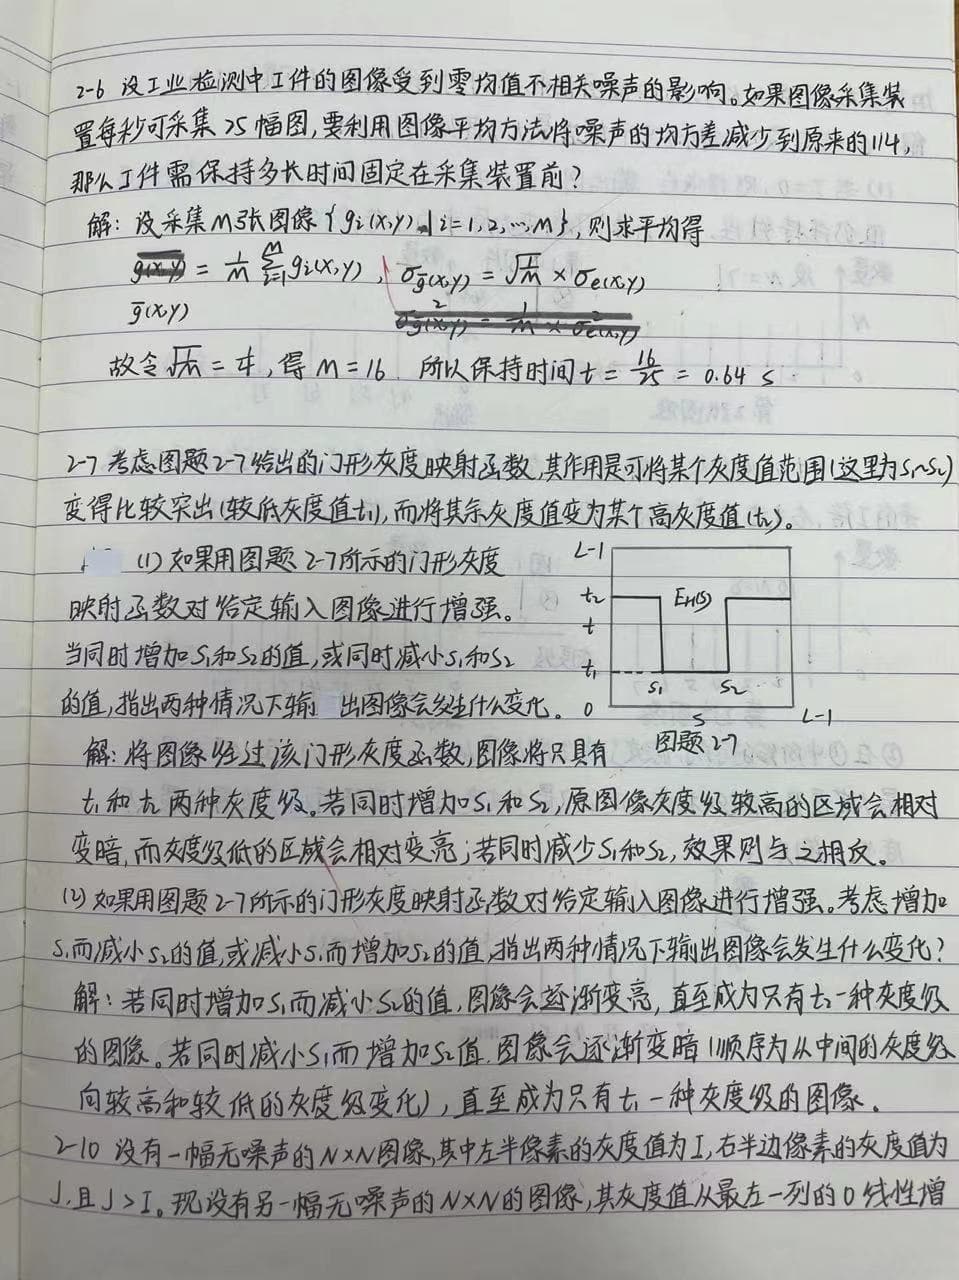 2-6 设工业检测中工件的图像受到零均值不相关噪声的影响。如果图像采集装
置每秒可采集25幅图,要利用图像平均方法将噪声的均方差减少到原来的1/4,
那么工件需保持多长时间固定在采集装置前?
解:设采集M张图像{gi(x,y)|i=1,2,…,M},则求平均得
g(x,y) = 1/M ∑ᴹᵢ₌₁ gi(x,y), σḡ(x,y) = √1/M × σe(x,y)
ḡ(x,y)
故令√1/M = 1/4,得 M=16 所以保持时间t = 16/25 = 0.64 s.
2-7 考虑图题2-7给出的门形灰度映射函数,其作用是可将某个灰度值范围(这里为S1~S2)
变得比较突出(较低灰度值t1),而将其余灰度值变为某个高灰度值(t2)。
(1)如果用图题2-7所示的门形灰度
映射函数对给定输入图像进行增强。
当同时增加S1和S2的值,或同时减小S1和S2
的值,指出两种情况下输出图像会发生什么变化。
L-1
t2 EH(S)
t
t1
S1 S2
0 S L-1
图题2-7
解:将图像经过该门形灰度函数,图像将只具有
t1和t2两种灰度级。若同时增加S1和S2,原图像灰度级较高的区域会相对
变暗,而灰度级低的区域会相对变亮;若同时减少S1和S2,效果则与之相反。
(2)如果用图题2-7所示的门形灰度映射函数对给定输入图像进行增强。考虑增加
S1而减小S2的值,或减小S1而增加S2的值,指出两种情况下输出图像会发生什么变化?
解:若同时增加S1而减小S2的值,图像会逐渐变亮,直至成为只有t2一种灰度级
的图像。若同时减小S1而增加S2值,图像会逐渐变暗(顺序为从中间的灰度级
向较高和较低的灰度级变化),直至成为只有t1一种灰度级的图像。
2-10 设有一幅无噪声的N×N图像,其中左半像素的灰度值为I,右半边像素的灰度值为
J,且J>I。现设有另一幅无噪声的N×N的图像,其灰度值从最左一列的0线性增